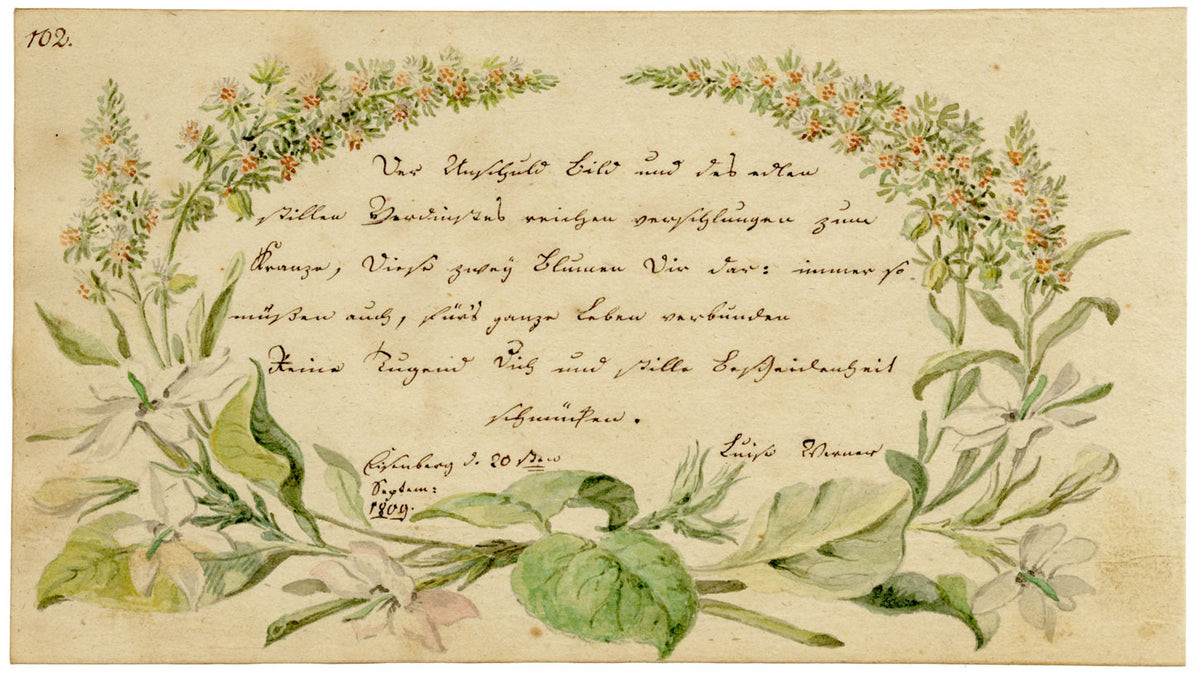 102.
Der Unschuld Bild und des edlen
stillen Verdinstes reichen verschlungen zum
Kranze, Diese zwey Blumen Dir dar: immer so
müßen auch, für's ganze Leben verbunden
Reine Tugend Dich und stille Bescheidenheit
schmücken.
Eisenberg d. 20 sten
Luise Werner
Septem:
1809.